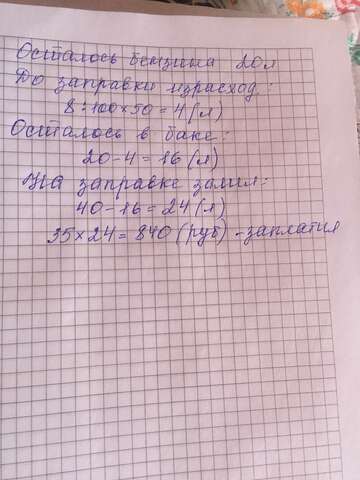 Осталось бензина 20л
До заправки израсход.:
8:100×50=4(л)
Осталось в баке:
20-4=16(л)
На заправке залил:
40-16=24(л)
35×24=840(руб)-заплатил